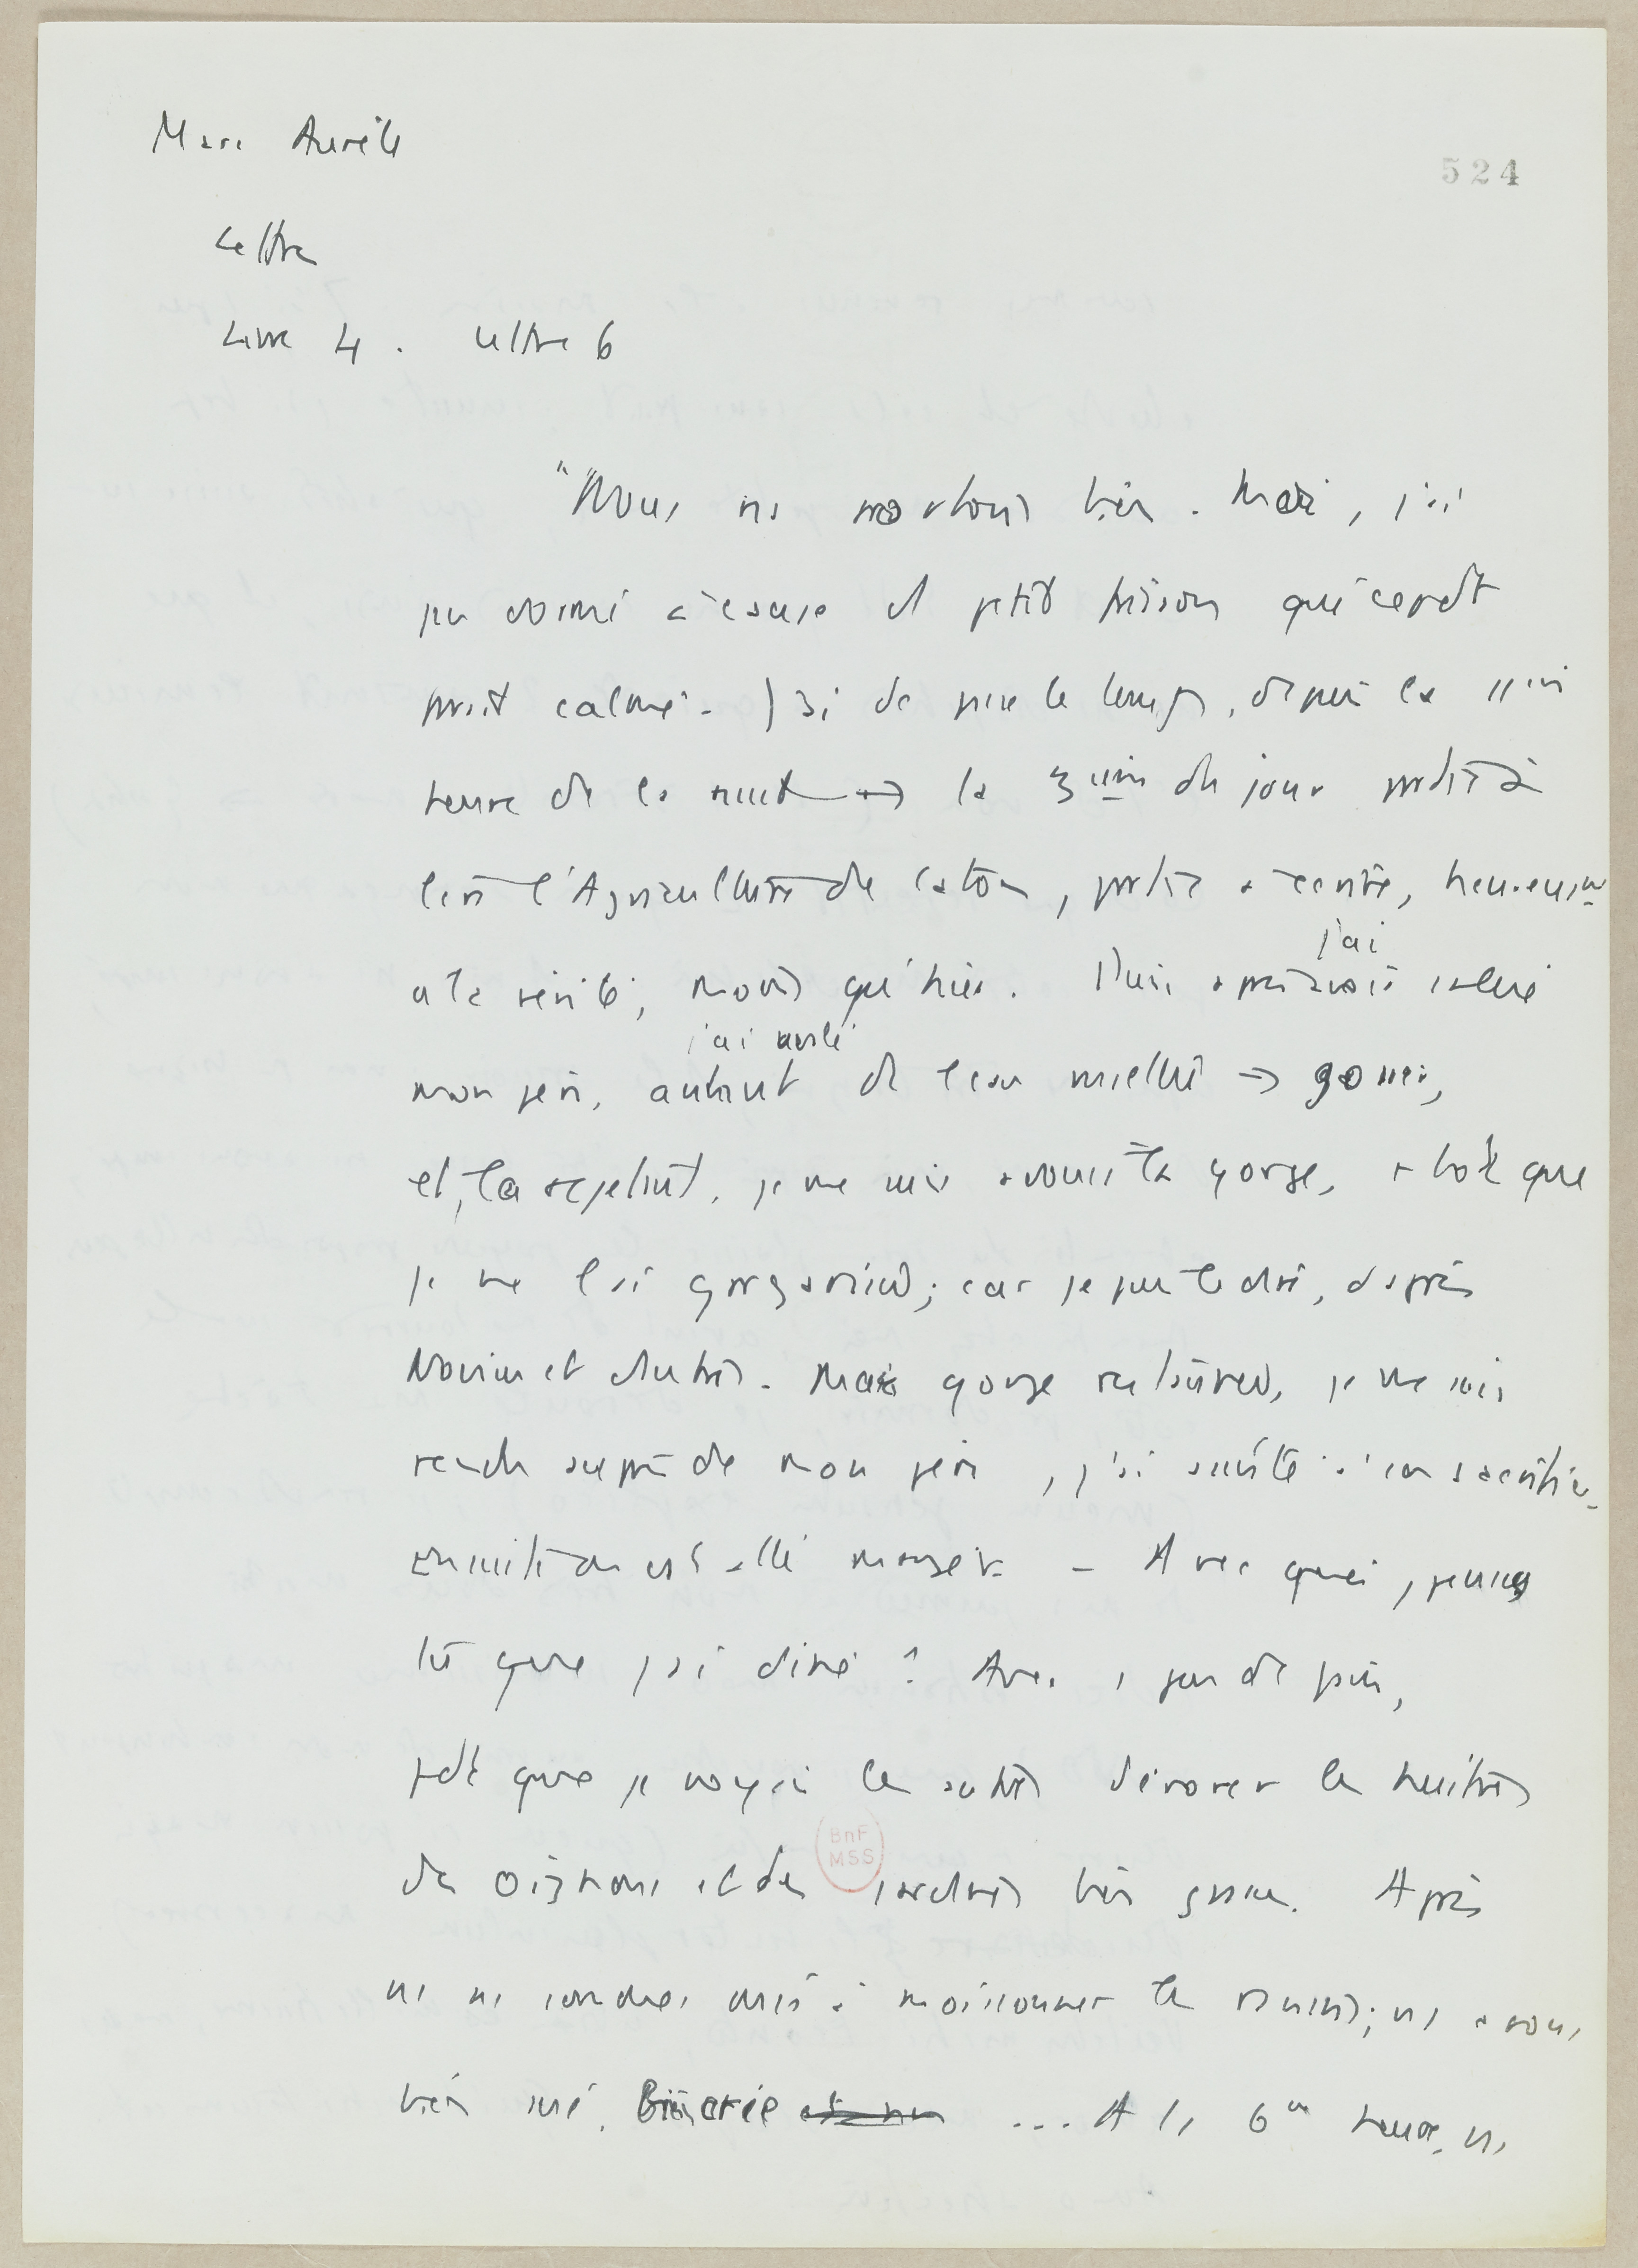 Marc Aurèle
524
Lettre
Livre 4. Lettre 6
"Nous ns portons bien. Moi, j'ai
peu dormi à cause d petit frisson qui cepdt
parait calmé. J'ai dc passé le temps, depuis la 11ème
heure de la nuit → la 3ème du jour partie à
lire l'Agriculture de Caton, partie à écrire, heureusemt
à la vérité, moins qu'hier. Puis après avoir salué
j'ai
mon père, autant de l'eau miellée → gosier,
j'ai avalé
et, la rejetant, je me suis adouci la gorge, plutôt que
je ne l'ai gargarisé; car je peux le dire, d'après
Novius et d'autres. Mais gorge restaurée, je me suis
rendu auprès de mon père, j'ai assisté à son sacrifice.
Ensuite on est allé manger. - Avec quoi, penses
tu que j'ai diné? Avec 1 peu de pain,
pdt que je voyais les autres dévorer des huitres
des oignons et des sardines bien grasses. Après
ns ns sommes mis à moissonner les raisins; ns avons
bien sué, bien crié ... A la 6e heure, ns
BnF
MSS